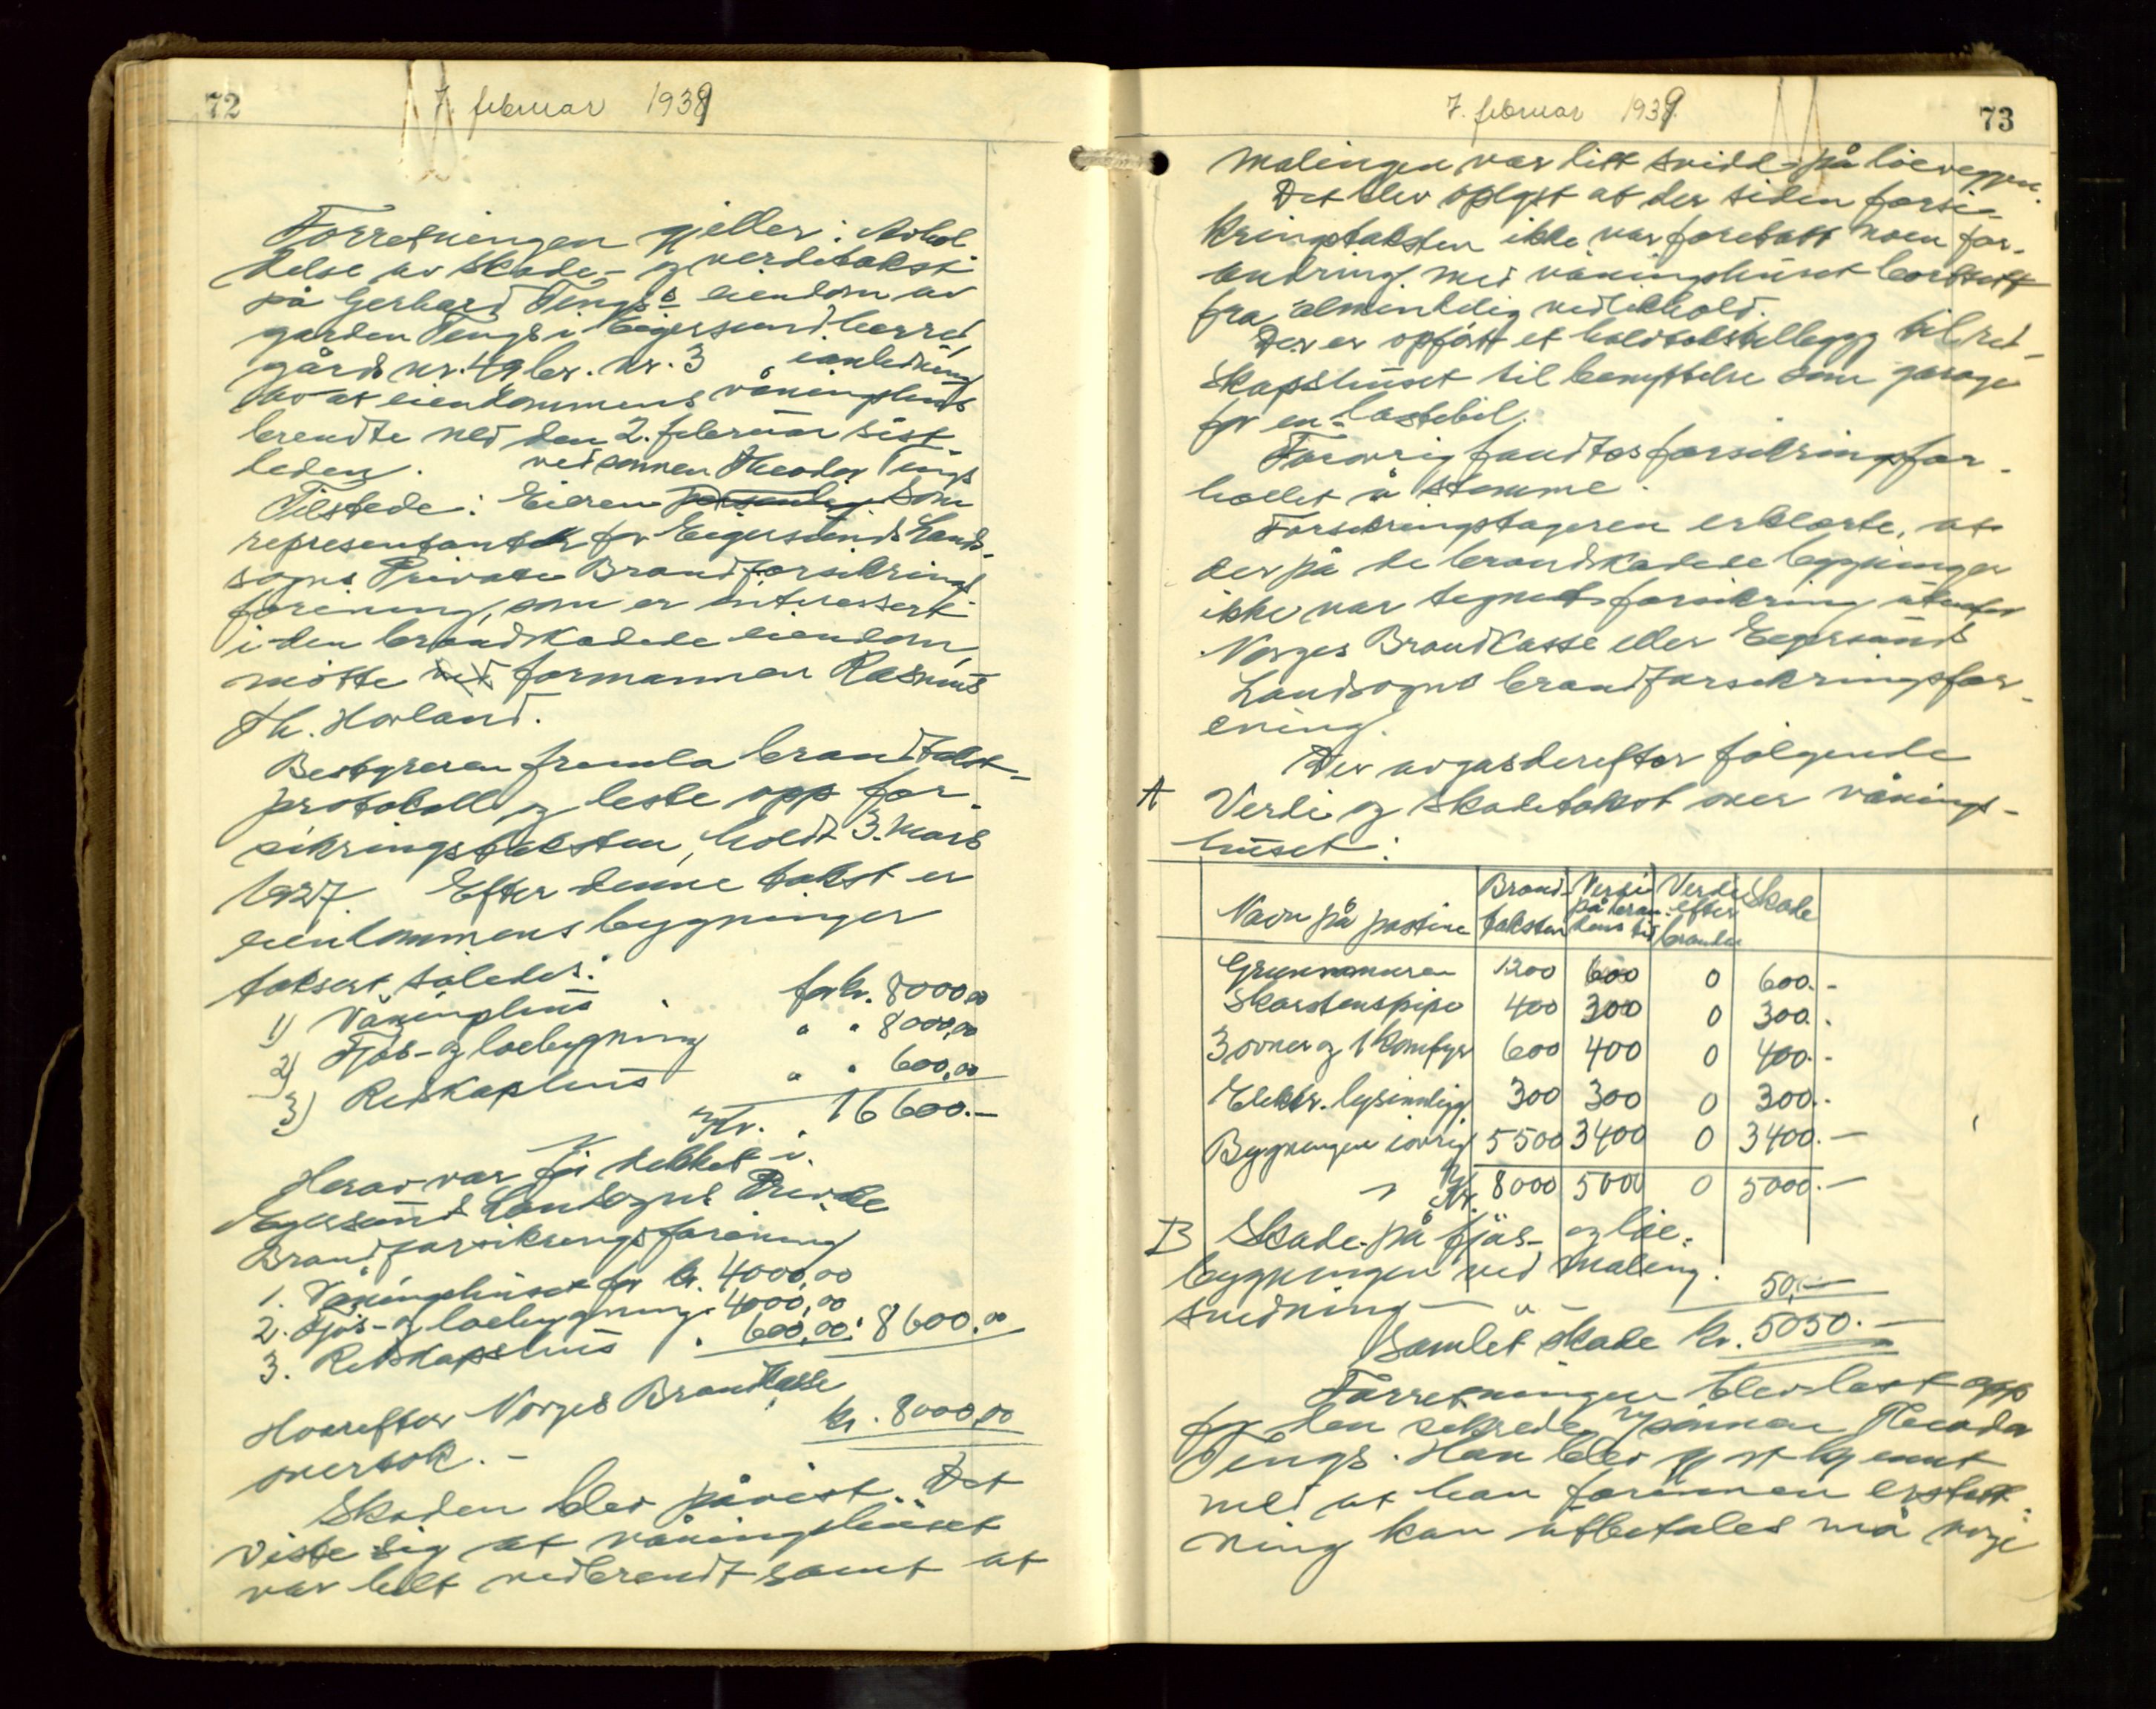 72
7. februar 1939
Forretningen gjeller: Avhol
delse av skade- og verditakst
på Gerhard Tengs's eiendom av
garden Tengs i Eigersund herred,
gårds nr. 49 br. nr. 3 i anledning
av at eiendommens våningshus
brendte ned den 2. februar sist
leden.
ved sønnen Theodor Tengs
Tilstede: Eieren personlig. Som
representant for Eigersunds Land-
sogns Private Brandforsikrings
forening, som er interessert
i den brandskadede eiendom,
møtte ved formannen Rasmus
Th. Hovland.
Bestyreren fremla brandtakst-
protokoll og leste opp for-
sikringstaksten, holdt 3. mars
1927. Efter denne takst er
eiendommens bygninger
taksert således:
1) Våningshus for kr. 8000,00
2) Fjøs- og løebygning " " 8000,00
3) Redskapshus " " 600,00
Kr. 16600.-
Herav var før dekket i
Egersund Landsogns Private
Brandforsikringsforening
1. Våningshuset for kr. 4000,00
2. Fjøs- og løebygning " 4000,00
3. Redskapshus " 600,00: 8600,00
Hvorefter Norges Brandkasse
kr. 8000,00
oversok.-
Skaden blev påvist. Det
viste sig at våningshuset
var helt nedbrendt samt at
7. februar 1939.
73
malingen var litt svidd på løeveggen.
Det blev oplyst at der siden forsi-
kringstaksten ikke var foretatt noen for-
andring med våningshuset bortsett
fra almindelig vedlikehold.
Der er opført et tillegg til red-
skapshuset til benyttelse som garage
for en lastebil.
Forøvrig fandtes forsikringsfor-
holdet å stemme.
Forsikringstageren erklærte, at
der på de brandskadede bygninger
ikke var tegnet forsikring utenfor
Norges Brandkasse eller Egersunds
Landsogns brandforsikringsfor-
ening.
Der avgas derefter følgende
A Verdi og skadetakst over vånings-
huset:
Navn på postene Brand- taksten Verdi på bran- dens tid Verdi efter branden Skade
Grunnmuren 1200 600 0 600.-
Skorstenspipe 400 300 0 300.-
3 ovner og 1 komfyr 600 400 0 400.-
Elektr. lysinnlegg 300 300 0 300.-
Bygningen iøvrig 5500 3400 0 3400.-
Kr. 8000 5000 0 5000.-
B Skade på fjøs- og løe-
bygningen ved maling.
svidning — " — 50,-
Samlet skade kr. 5050.-
Forretningen blev lest opp
for den sikrede v/ sønnen Theodor
Tengs. Han blev gjort kjennt
med at han forinnen erstatt-
ning kan utbetales må